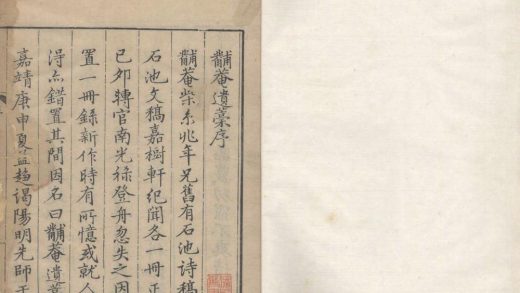 黼菴遺藁序
黼菴柴京兆年兄舊有石池詩稿
石池文稿嘉樹軒紀聞各一冊正
已夘轉官南光祿登舟忽失之因
置一冊錄新作時有所憶或就人
淂亦錯置其間因名曰黼菴遺藁
嘉靖庚申夏孟趨謁陽明先師于